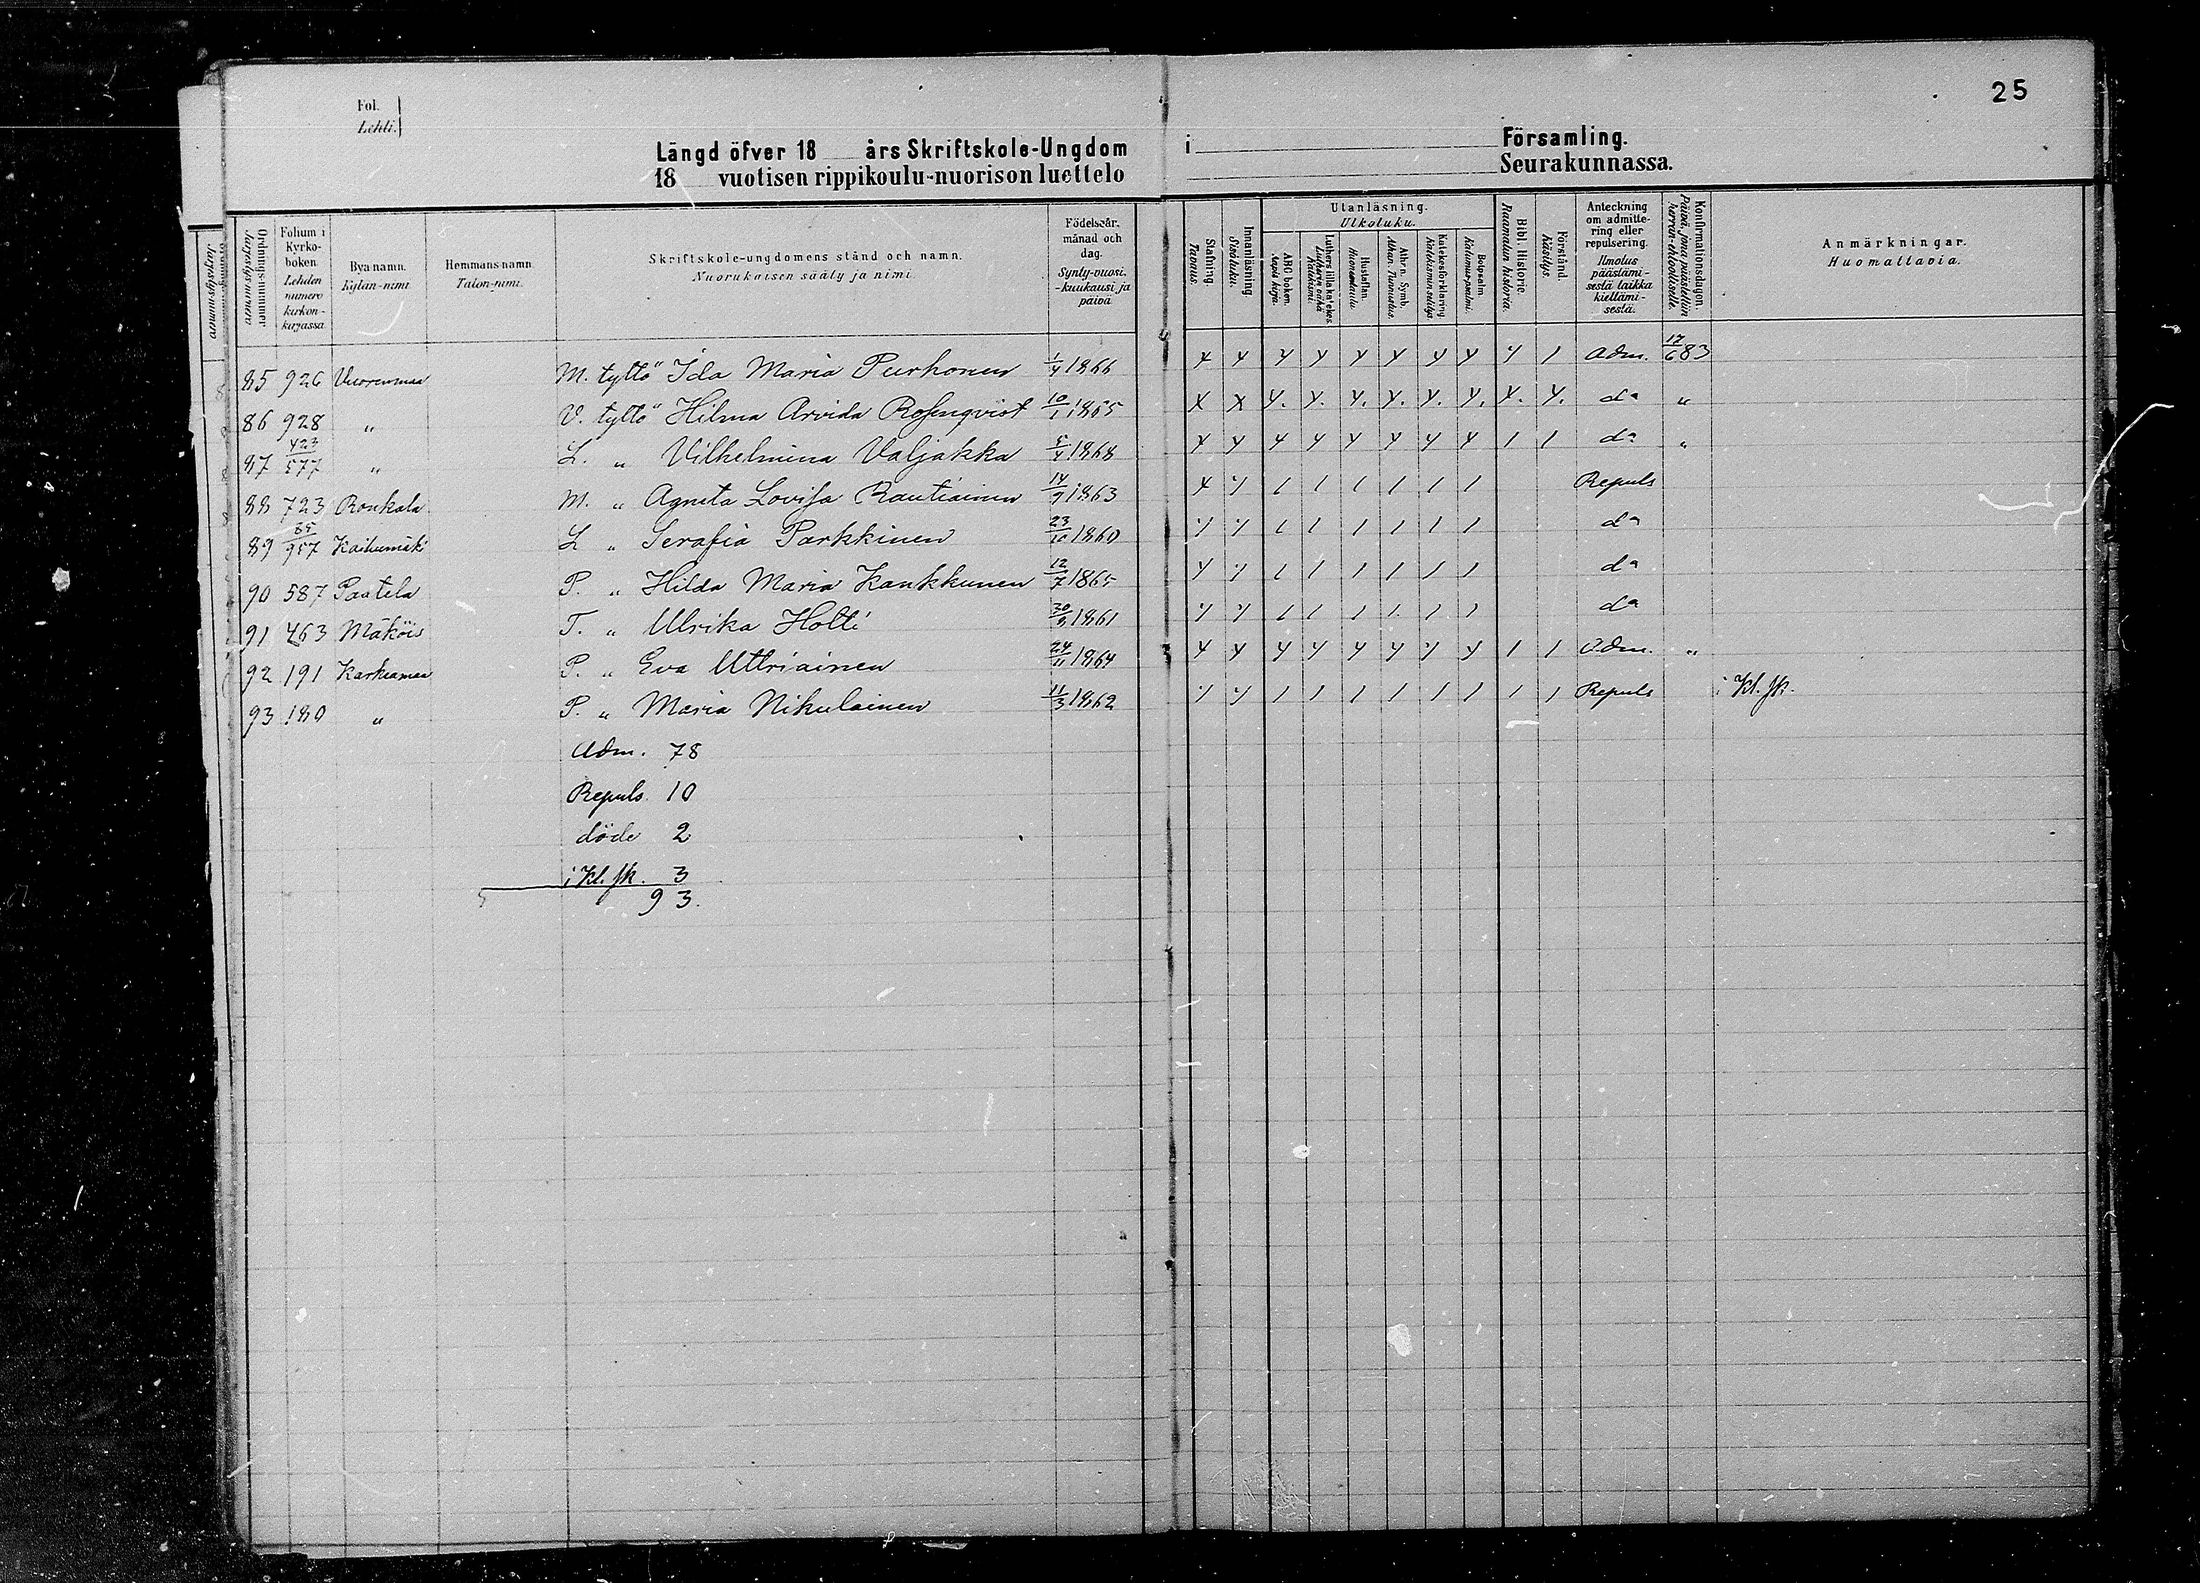 25
Fol.
Lehti.
Längd öfver 18 års Skriftskole-Ungdom i Församling.
18 vuotisen rippikoulu-nuorison luettelo Seurakunnassa.
Ordnings-nummer. Järjestys-numero
Folium i Kyrko-boken. Lehden numero kirkon-kirjassa
Bya namn. Kylän-nimi.
Hemmans namn Talon-nimi.
Skriftskole-ungdomens stånd och namn. Nuorukaisen sääty ja nimi.
Födelseår, månad och dag. Synty-vuosi, -kuukausi ja päivä
Stafning. Tavaus.
Innanläsning. Sisäluku.
Utanläsning. Ulkoluku.
ABC boken. Aapis kirja.
Luthers lilla katekes. Lutherin vähä Katekismi.
Hustaflan. Huoneentaulu.
Atha n. Symb. Athan. Tunnustus.
Katekesförklaring. Katekismun selitys
Botpsalm. Katumus-psalmi.
Bibl. Historie. Raamatun historia.
Förstånd. Käsitys.
Anteckning om admitte-ring eller repulsering. Ilmotus päästämi-sestä taikka kieltämi-sestä.
Konfirmationsdagen. Päivä, jona päästettiin herran-ehtoolliselle.
Anmärkningar. Huomattavia.
85 926 Vuorenmaa M. tyttö Ida Maria Purhonen 1/4 1866 x x x x x x x x x 1 Adm. 17/6 83
86 928 " V. tyttö Hilma Arvida Rosenqvist 10/1 1865 x x x. x. x. x. x. x. x. x. do "
87 423/577 " L. " Vilhelmina Valjakka 5/4 1868 x x x x x x x x 1 1 do "
88 723 Ronkala M. " Agneta Lovisa Rautiainen 14/9 1863 x x 1 1 1 1 1 1 Repuls
89 85/957 Kaihumäki L " Serafia Parkkinen 23/10 1860 x x 1 1 1 1 1 1 do
90 587 Paatela P. " Hilda Maria Kaukkunen 12/7 1865 x x 1 1 1 1 1 1 do
91 463 Mäköis T. " Ulrika Holti 30/9 1861 x x 1 1 1 1 1 1 do
92 191 Karkiamaa P. " Eva Uttriainen 24/11 1864 x x x x x x x x 1 1 Adm. "
93 180 " P. " Maria Nikulainen 11/3 1862 x x 1 1 1 1 1 1 1 1 Repuls i Kl. sk.
Adm. 78
Repuls. 10
döde 2
i Kl. sk. 3
93.